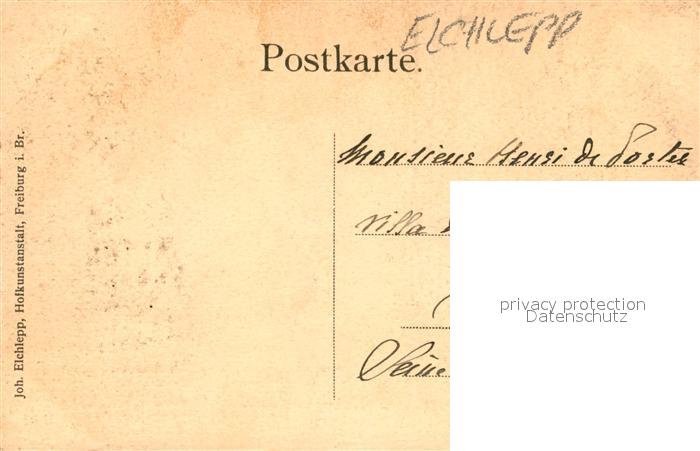 ELCHLEPP
Postkarte.
Joh. Elchlepp, Hofkunstanstalt, Freiburg i. Br.
Monsieur Henri de Portes
Villa
privacy protection
Datenschutz
Seine